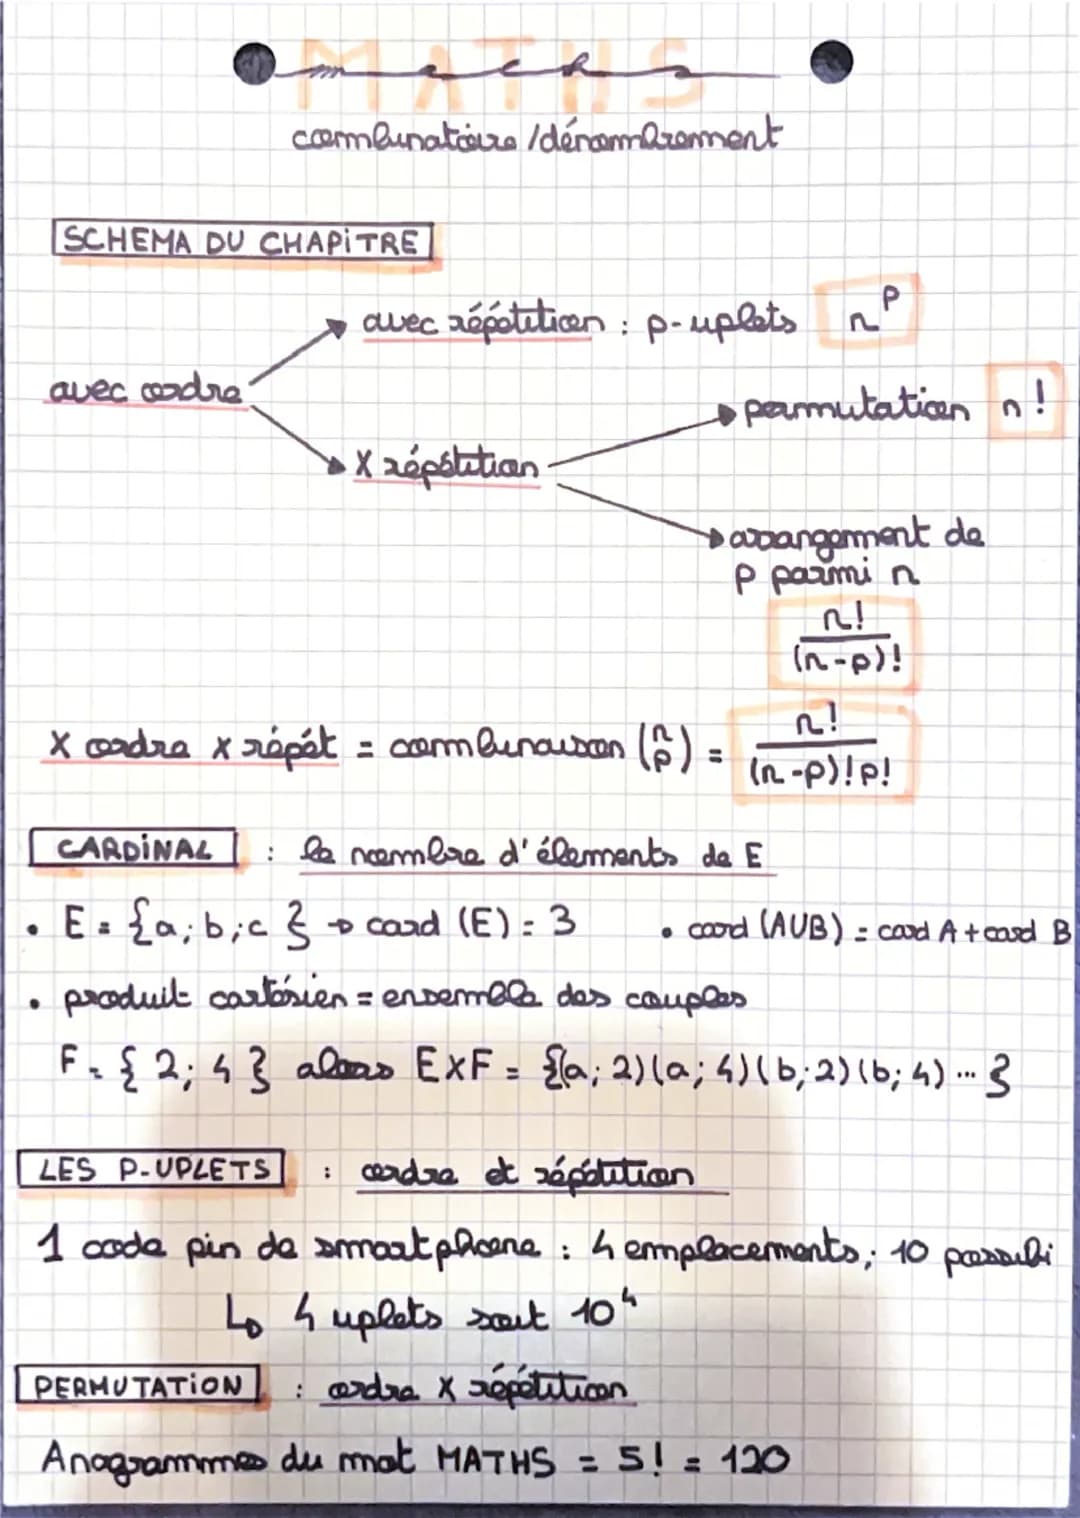 MATHS
maths
combinatoire / dénombrement
SCHEMA DU CHAPITRE
avec répétition : p-uplets n^p
avec ordre
permutation n!
X répétition
arrangement de
p parmi n
n!/(n-p)!
X ordre X répét = combinaison (n p) = n!/((n-p)!p!)
CARDINAL : le nombre d'élements de E
• E = {a; b; c} → card (E) = 3 • card (AUB) = card A + card B
• produit cartésien = ensemble des couples
F = {2; 4} alors ExF = {(a; 2)(a; 4)(b; 2)(b; 4) ... }
LES P-UPLETS : ordre et répétition
1 code pin de smartphone : 4 emplacements; 10 possibi
↳ 4 uplets soit 10^4
PERMUTATION : ordre X répétition
Anagrammes du mot MATHS = 5! = 120